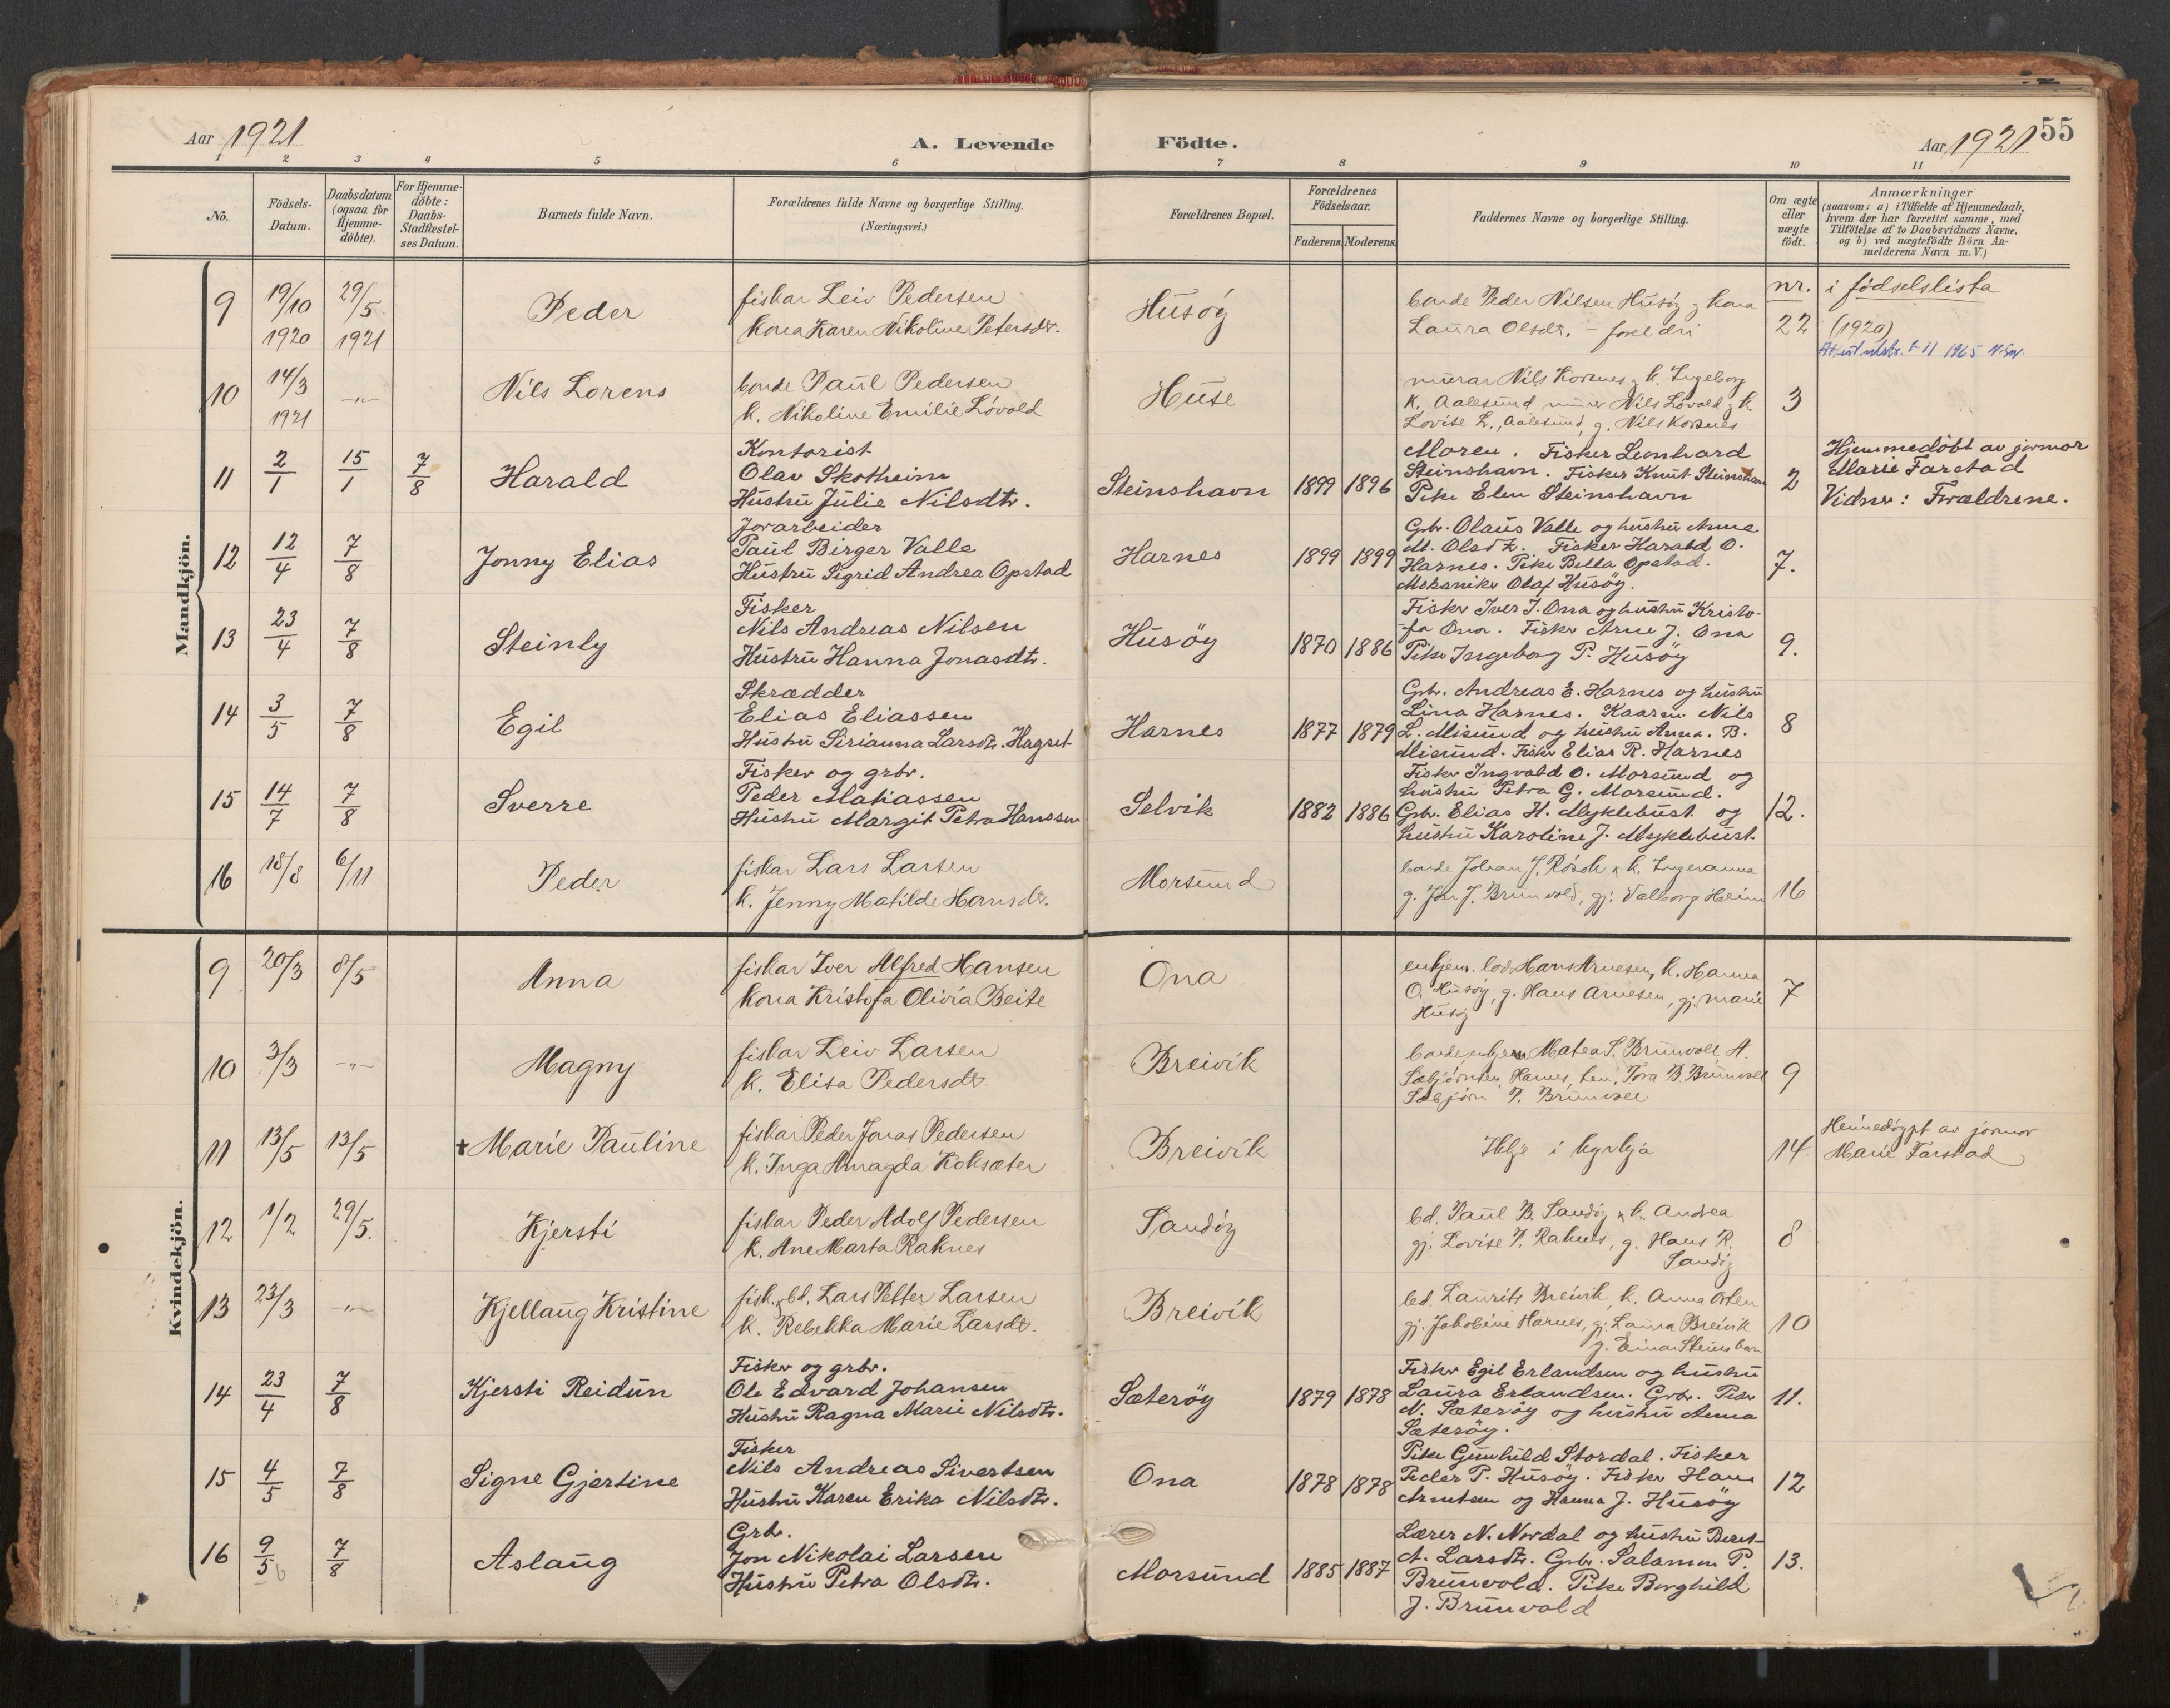 Aar 1921
A. Levende
Födte.
Aar 1921
55
1 2 3 4 5 6 7 8 9 10 11
No.
Födsels-
Datum.
Daabsdatum
(ogsaa for
Hjemme-
döbte).
For Hjemme-
döbte:
Daabs-
Stadfæstel-
ses Datum.
Barnets fulde Navn.
Forældrenes fulde Navne og borgerlige Stilling.
(Næringsvei.)
Forældrenes Bopæl.
Forældrenes
Födselsaar.
Faderens. Moderens.
Faddernes Navne og borgerlige Stilling.
Om ægte
eller
uægte
födt.
Anmærkninger
(saasom: a) i Tilfælde af Hjemmedaab,
hvem der har forrettet samme, med
Tilföielse af to Daabsvidners Navne,
og b) ved uægtefödte Börn An-
melderens Navn m. V.)
Mandkjön.
9
19/10
1920
29/5
1921
Peder
fiskar Leiv Pedersen
kona Karen Nikoline Petersdr.
Husøy
bonde Peder Nilsen Husøy og kona
Laura Olsdr. - foreldri
nr.
22
i fødselslista
(1920)
10
14/3
1921
-"-
Nils Lorens
bonde Paul Pedersen
k. Nikoline Emilie Lóvold
Huse
murar Nils Korsnes, k. Ingeborg
K., Aalesund, murer Nils Lóvold, k.
Lovise L., Aalesund, g. Nils Korsnes
3
11
2/1
15/1
7/8
Harald
Kontorist
Olav Skotheim
Hustru Julie Nilsdtr.
Steinshavn
1899 1896
Moren. Fisker Leonhard
Steinshavn. Fisker Knut Steinshavn
Pike Elen Steinshavn
2
Hjemmedöbt av jormor
Marie Farstad
Vidner: Forældrene.
12
12/4
7/8
Jonny Elias
Jorarbeider
Paul Birger Valle
Hustru Sigrid Andrea Opstad
Harnes
1899 1899
Grbr. Olaus Valle og hustru Anne
M. Olsdtr. Fisker Harald O.
Harnes. Pike Bella Opstad.
Mekaniker Olaf Husöy.
7.
13
23/4
7/8
Steinly
Fisker
Nils Andreas Nilsen
Hustru Hanna Jonasdtr.
Husöy
1870 1886
Fisker Iver J. Ona og hustru Kristo-
fa Ona. Fisker Arne J. Ona
Pike Ingeborg P. Husöy
9.
14
3/5
7/8
Egil
Skrædder
Elias Eliassen
Hustru Sirianna Larsdtr. Hagset
Harnes
1877 1879
Grbr. Andreas E. Harnes og hustru
Lina Harnes. Nils
L. Misund og hustru Anna. B.
Misund. Fisker Elias R. Harnes
8
15
14/7
7/8
Sverre
Fisker og grbr.
Peder Matiassen
Hustru Margit Petra Hanssen
Selvik
1882 1886
Fisker Ingvald O. Morsund og
hustru Petra G. Morsund.
Grbr. Elias H. Myklebust og
hustru Karoline J. Myklebust
12.
16
18/8
6/11
Peder
fiskar Lars Larsen
k. Jenny Matilde Hansdr.
Morsund
bonde Johan J. Rósok & k. Ingeranna
g. Jon J. Brunvold, gj. Valborg Heim
16
Kvindekjön.
9
20/3
8/5
Anna
fiskar Iver Alfred Hansen
Kona Kristofa Olivia Beite
Ona
enkjem. Hans Arnesen, k. Hanna
O. Husøy, g. Hans Arnesen, gj. Marie
Husøy
7
10
3/3
-"-
Magny
fiskar Leiv Larsen
k. Elisa Pedersdr.
Breivik
Matea S. Brunvoll, A.
Sæbjørnsen Harnes, Tora B. Brunvoll
Sæbjørn P. Brunvoll
9
11
13/5
13/5
✝ Marie Pauline
fiskar Peder Jonas Pedersen
k. Inga Amagda Koksæter
Breivik
Ikkje i kyrkja
14
Heimedøypt av jormor
Marie Farstad
12
1/2
29/5.
Kjersti
fiskar Peder Adolf Pedersen
k. Ane Marta Raknes
Sandøy
bd. Paul B. Sandøy & k. Andrea
gj. Lovise P. Raknes, g. Hans R.
Sandøy
8
13
23/3
-"-
Kjellaug Kristine
fisk. & bd. Lars Petter Larsen
k. Rebekka Marie Larsdr.
Breivik
bd. Laurits Breivik, k. Anna Orten
gj. Jakobine Harnes, gj. Laura Breivik
g. Einar Steinshavn
10
14
23/4
7/8
Kjersti Reidun
Fisker og grbr.
Ole Edvard Johansen
Hustru Ragna Marie Nilsdtr.
Sæteröy
1879 1878
Fisker Egil Erlandsen og hustru
Laura Erlandsen. Grbr. Peder
N. Sæteröy og hustru Anna
Sæteröy.
11.
15
4/5
7/8
Signe Gjertine
Fisker
Nils Andreas Sivertsen
Hustru Karen Erika Nilsdtr.
Ona
1878 1878
Pike Gunhild Stordal. Fisker
Peder P. Husöy. Fisker Hans
Arntsen og Hanna J. Husöy
12
16
9/5
7/8
Aslaug
Grbr.
Jon Nikolai Larsen
Hustru Petra Olsdtr.
Morsund
1885 1887
Lærer N. Nordal og hustru Beret
A. Larsdtr. Grbr. Salamon P.
Brunvold. Pike Borghild
J. Brunvold
13.